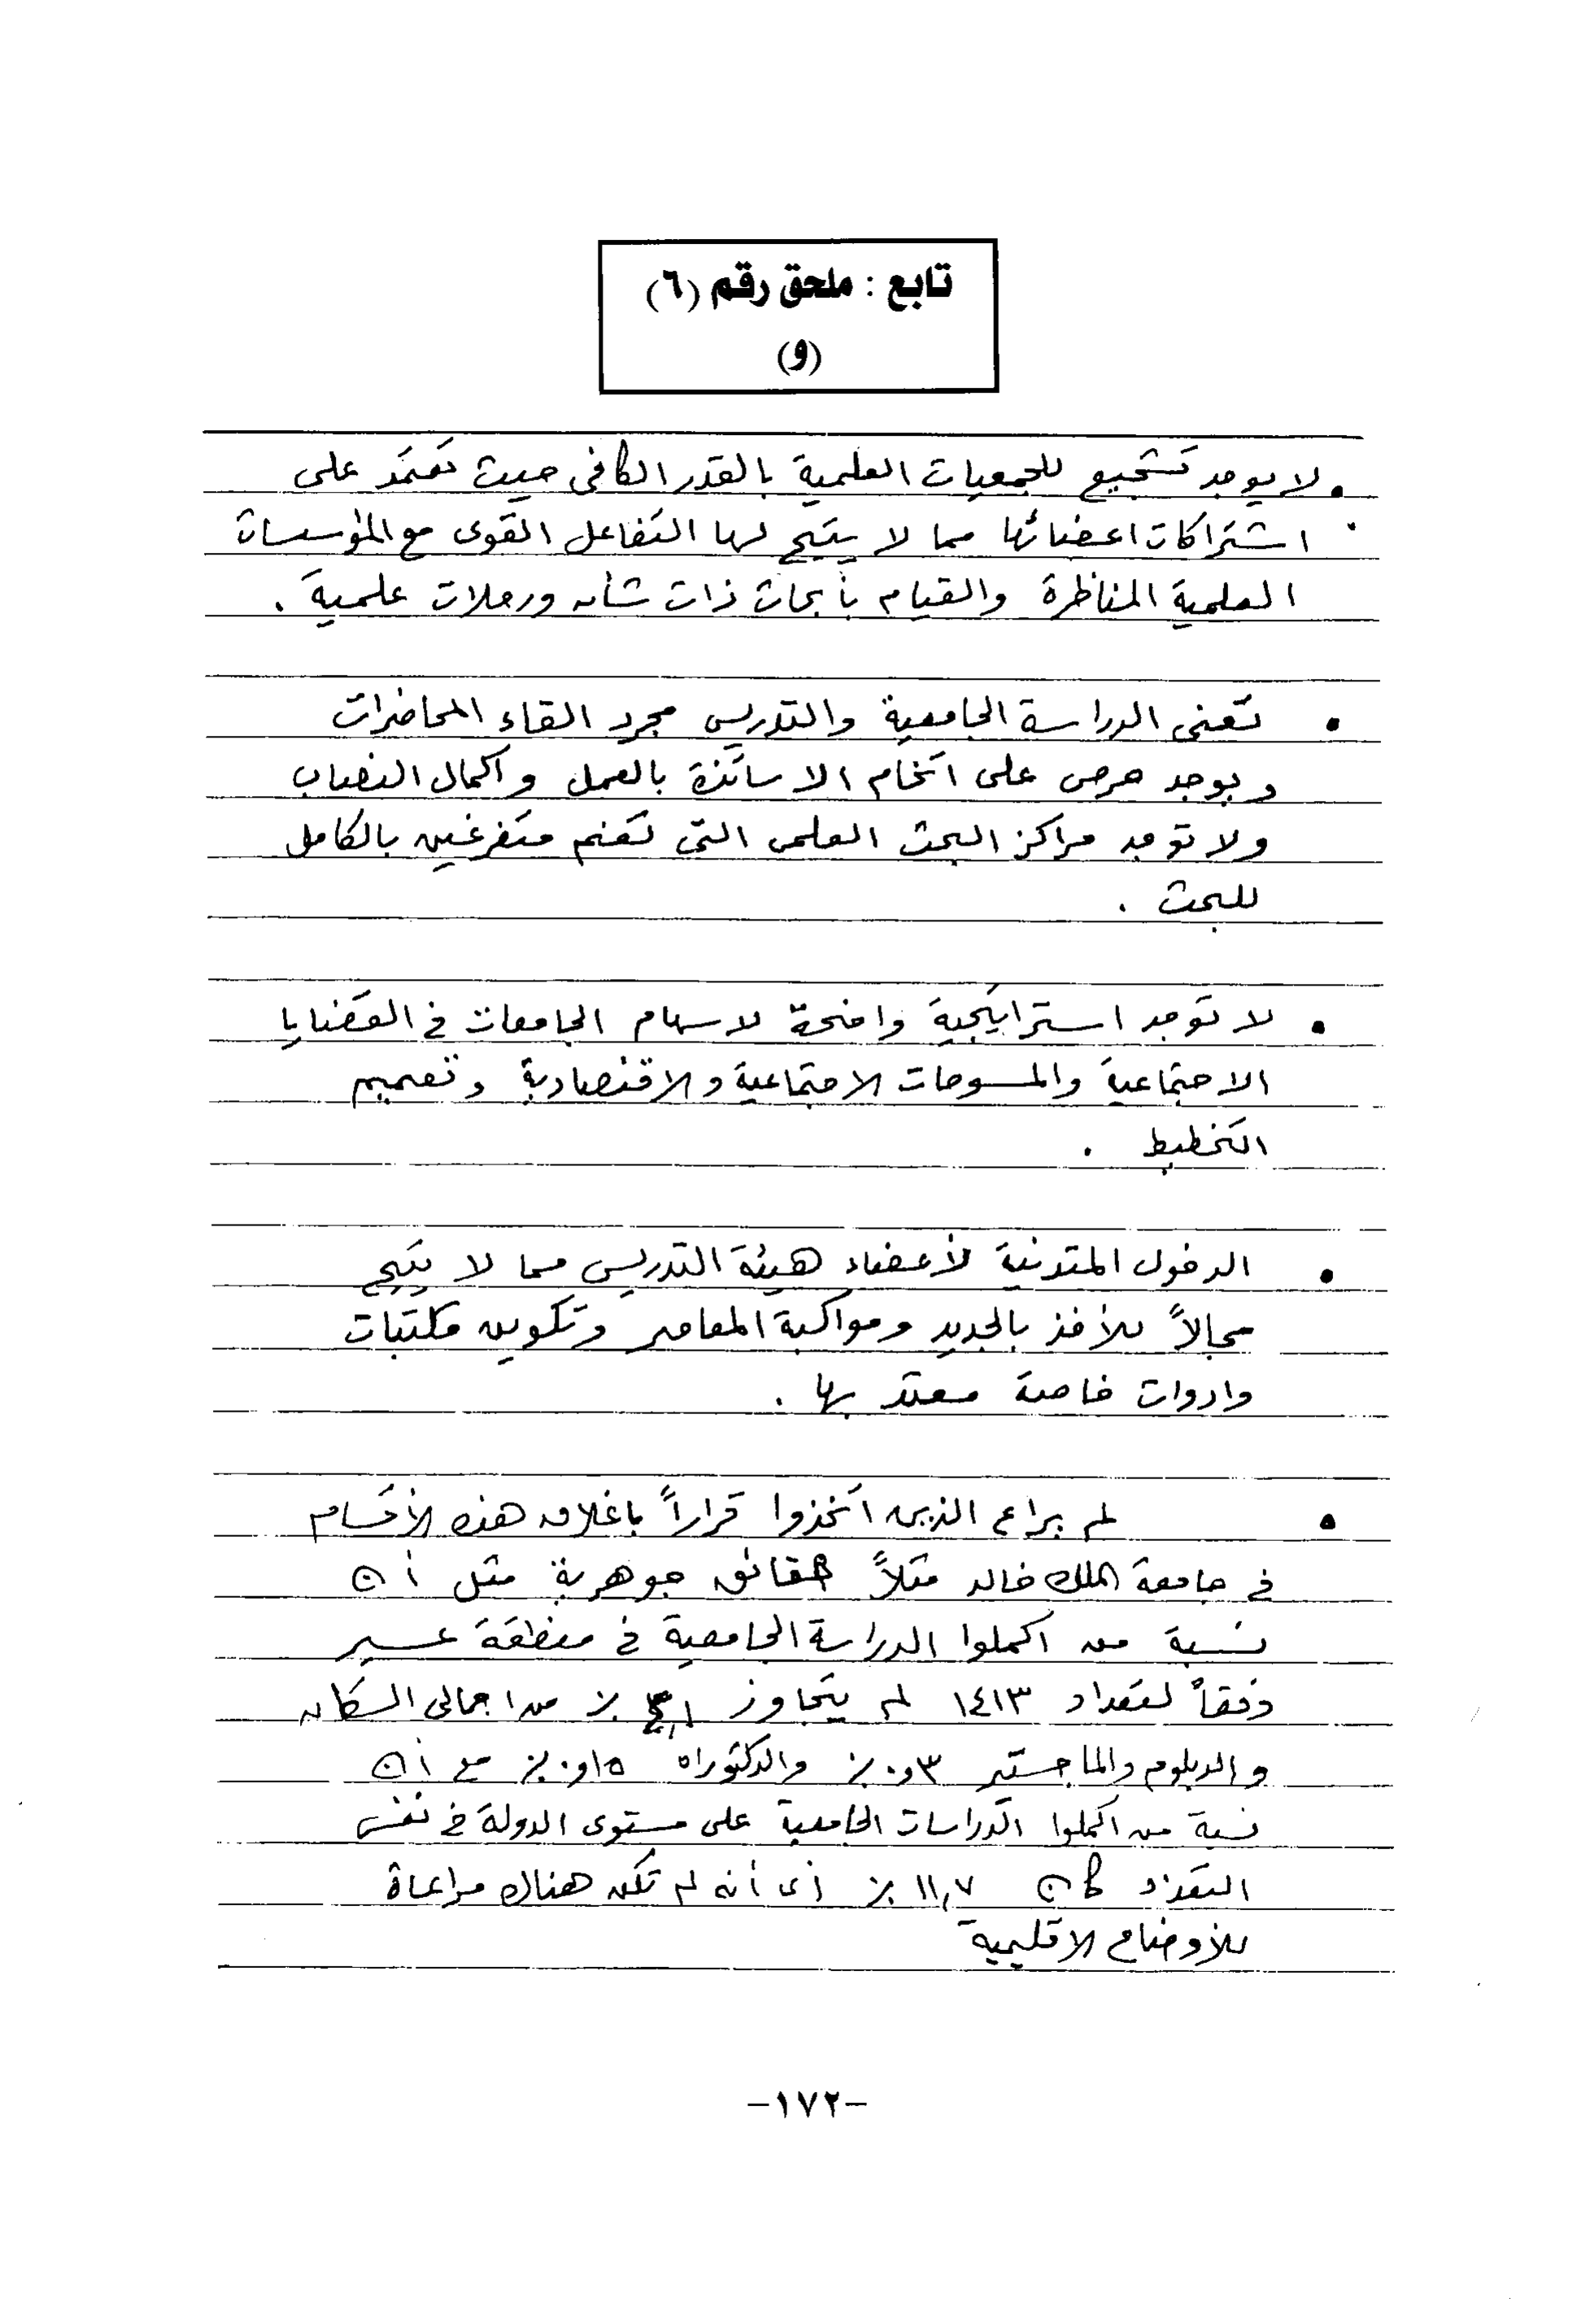 تابع : ملحق رقم (٦)
(و)
• لا يوجد تشجيع للجمعيات العلمية بالقدر الكافى حيث تعتمد على
اشتراكات اعضائها مما لا يتيح لها التفاعل القوى مع المؤسسات
العلمية المناظرة والقيام بأبحاث ذات شأن ورحلات علمية .
• تعنى الدراسة الجامعية والتدريس مجرد القاء المحاضرات
ويوجد حرص على اتخام الاساتذة بالعمل واكمال النصاب
ولا توجد مراكز البحث العلمى التى تضم متفرغين بالكامل
للبحث .
• لا توجد استراتيجية واضحة لاسهام الجامعات فى القضايا
الاجتماعية والمسوحات الاجتماعية والاقتصادية وتعميم
التخطيط .
• الدخول المتدنية لأعضاء هيئة التدريس مما لا يتيح
مجالاً للأخذ بالجديد ومواكبة المعاصر وتكوين مكتبات
وادوات خاصة معتد بها .
• لم يراع الذين اتخذوا قراراً باغلاق هذه الأقسام
فى جامعة الملك خالد مثلاً حقائق جوهرية مثل أن
نسبة من اكملوا الدراسة الجامعية فى منطقة عسير
وفقاً لتعداد ١٤١٣ لم يتجاوز ٪ من اجمالى السكان
والدبلوم والماجستير ٠٫٣٪ والدكتوراه ٠٫١٥٪ مع أن
نسبة من اكملوا الدراسات الجامعية على مستوى الدولة فى نفس
التعداد كان ١١٫٧٪ أى أنه لم تكن هناك مراعاة
للأوضاع الاقليمية
-١٧٢-